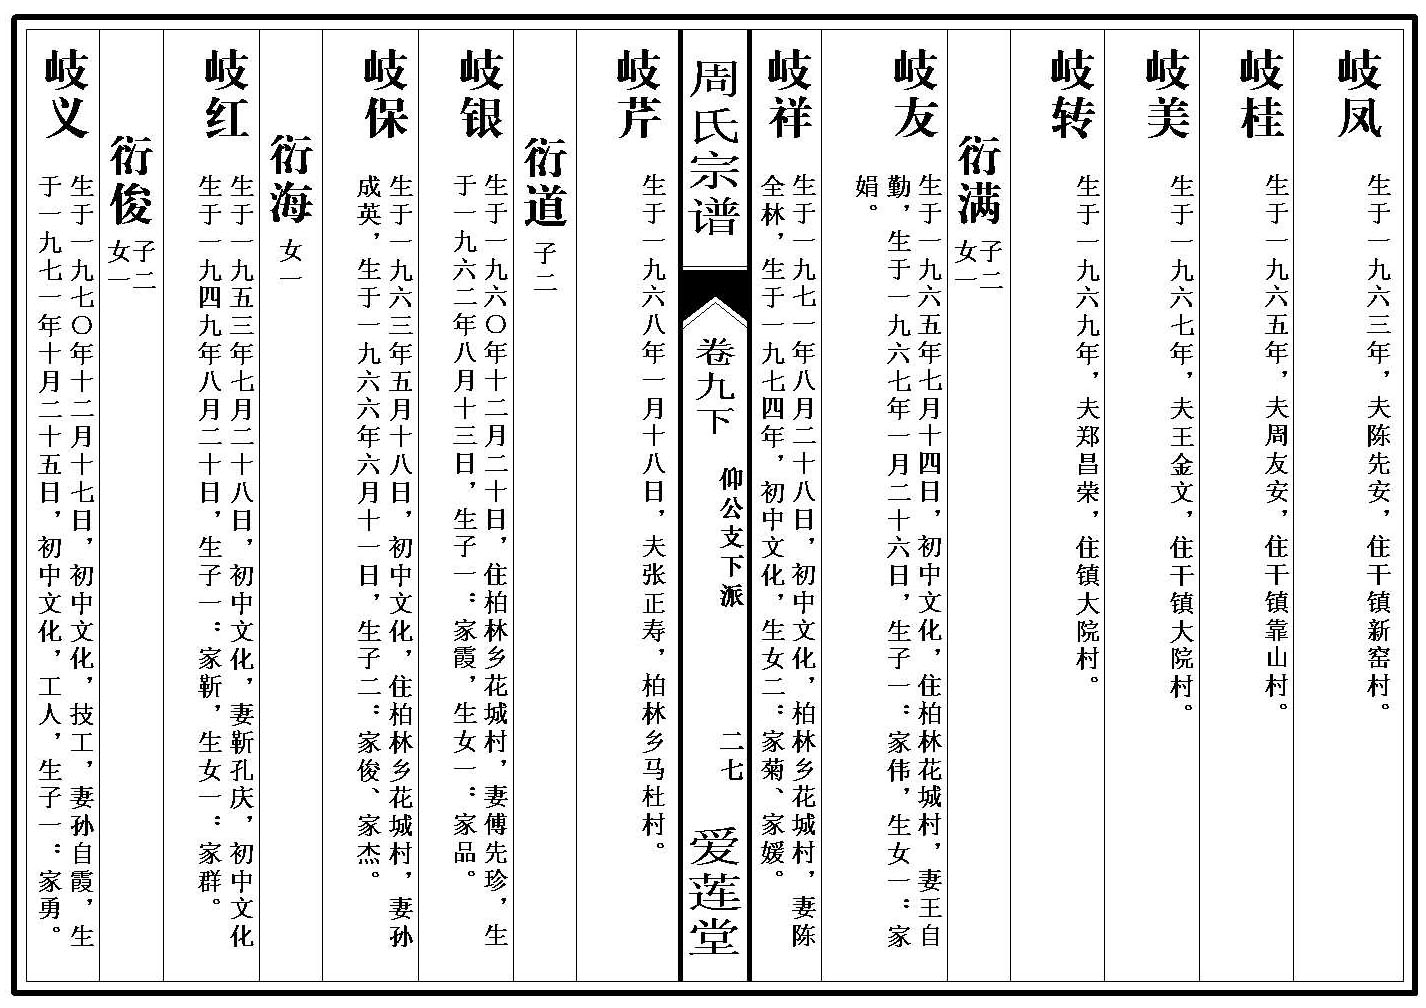 岐凤
生于一九六三年，夫陈先安，住干镇新窑村。
岐桂
生于一九六五年，夫周友安，住干镇靠山村。
岐美
生于一九六七年，夫王金文，住干镇大院村。
岐转
生于一九六九年，夫郑昌荣，住镇大院村。
衍满
子二
女一
岐友
生于一九六五年七月十四日，初中文化，住柏林花城村，妻王自
勤，生于一九六七年一月二十六日，生子一：家伟，生女一：家
娟。
岐祥
生于一九七一年八月二十八日，初中文化，柏林乡花城村，妻陈
全林，生于一九七四年，初中文化，生女二：家菊、家媛。
周氏宗谱
卷九下
仰公支下派
二七
爱莲堂
岐芹
生于一九六八年一月十八日，夫张正寿，柏林乡马杜村。
衍道
子二
岐银
生于一九六〇年十二月二十日，住柏林乡花城村，妻傅先珍，生
于一九六二年八月十三日，生子一：家霞，生女一：家品。
岐保
生于一九六三年五月十八日，初中文化，住柏林乡花城村，妻孙
成英，生于一九六六年六月十一日，生子二：家俊、家杰。
衍海
女一
岐红
生于一九五三年七月二十八日，初中文化，妻靳孔庆，初中文化
生于一九四九年八月二十日，生子一：家靳，生女一：家群。
衍俊
子二
女一
岐义
生于一九七〇年十二月十七日，初中文化，技工，妻孙自霞，生
于一九七一年十月二十五日，初中文化，工人，生子一：家勇。